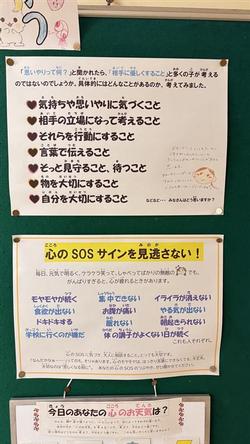 「思いやりって何？」と聞かれたら、「相手に優しくすること」と多くの子が考える
のではないのでしょうか。具体的にはどんなことがあるのか、考えてみました。
♥気持ちや思いやりに気づくこと
♥相手の立場になって考えること
♥それらを行動にすること
♥言葉で伝えること
♥そっと見守ること、待つこと
♥物を大切にすること
♥自分を大切にすること
などなど… みなさんはどう思いますか？
心のSOSサインを見逃さない！
毎日、元気で明るく、ケラケラ笑って、しゃべってばかりの無敵な
でも、
がんばりすぎると、心が疲れるときがあります。
モヤモヤが続く 集中できない イライラが消えない
食欲が出ない お腹が痛い やる気が出ない
ドキドキする 眠れない 朝起きられない
学校に行くのが嫌だ 体の調子がよくない日が続く
これも人それぞれ。
今日のあなたの心のお天気は？